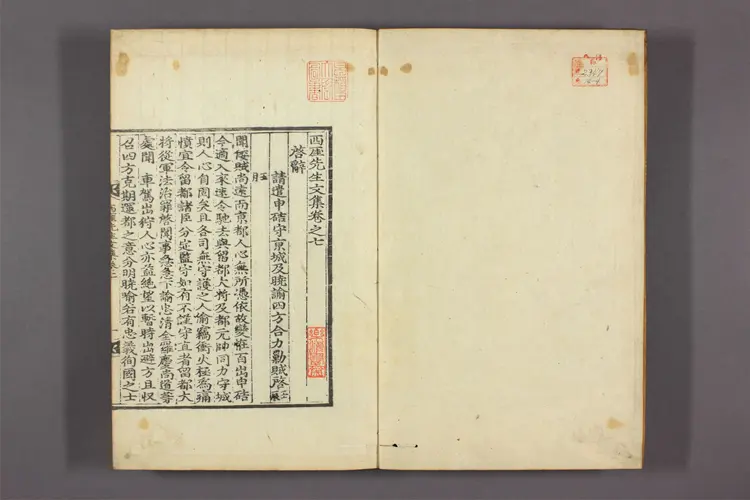 西厓先生文集卷之七
啓辭
請遣申硈守京城及曉諭四方合力勦賊啓
聞倭賊尚遠而京都人心無所憑依故變 百出申硈
今適入來速令馳去與留都大將及都元帥同力守城
則人心自固矣且各司無守護之人偷竊衝火極爲痛
憤宜令留都諸臣分定監守如有不謹守直者留都大
將從軍法治罪啓聞事急急下諭忠淸全羅慶尙道等
處聞 車駕出狩人心亦益絶望以暫時出避方且收
召四方克期還都之意分明曉喻若有忠義徇國之士